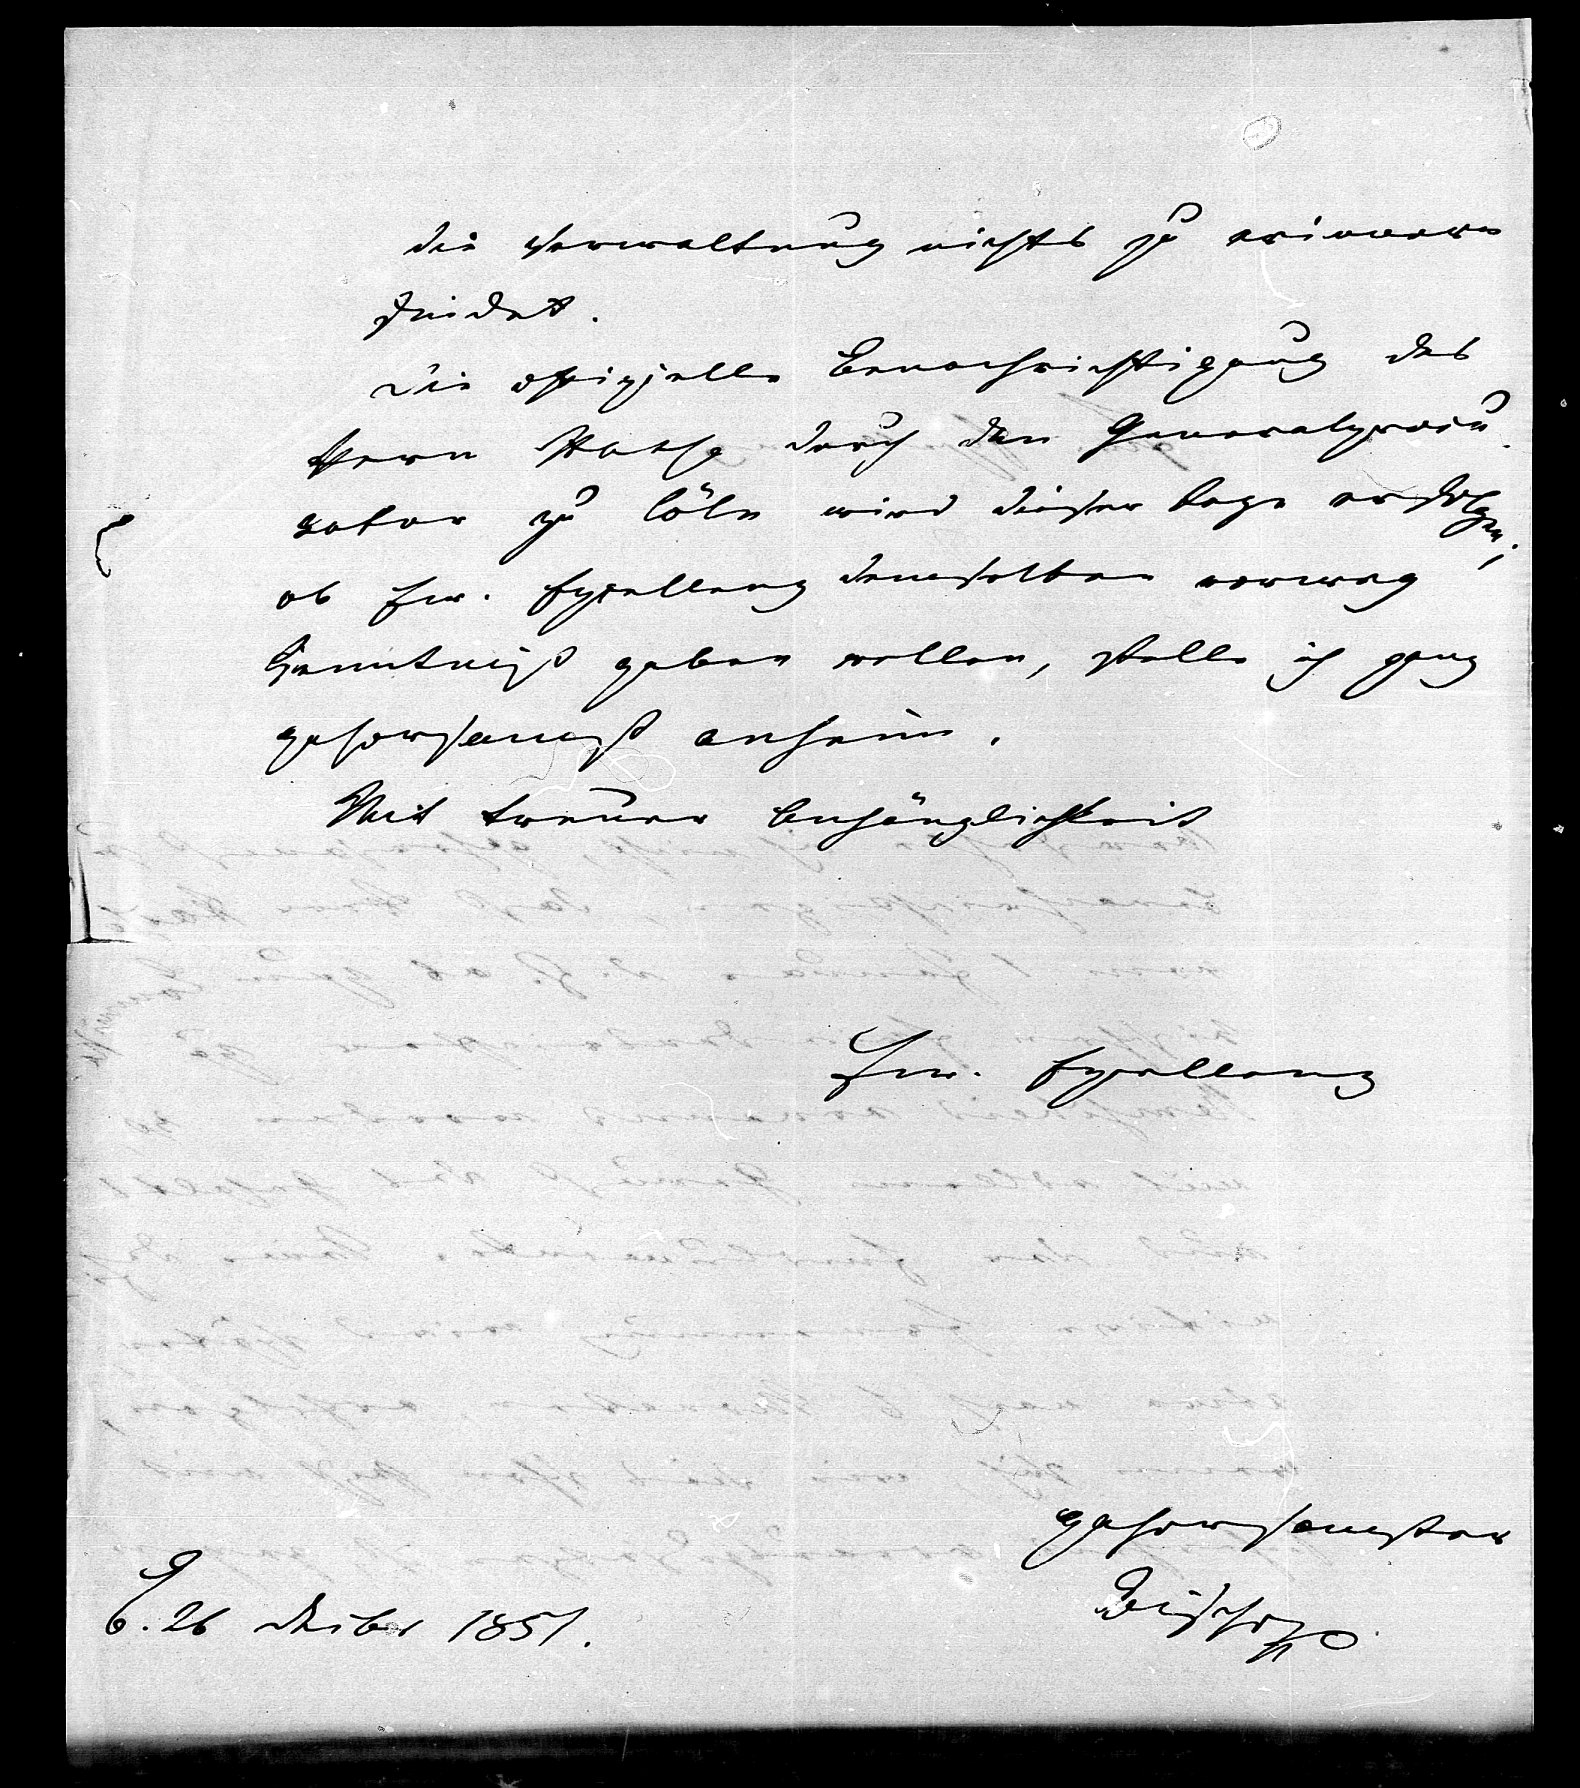 die Verwaltung nichts zu erinnern
findet.
Die offizielle Benachrichtigung des
Herrn durch den Generalprocu
rator zu Cöln wird dieser Tage erfolgen;
ob Ew. Excellenz demselben vorweg
Kenntniß geben wollen, stelle ich ganz
gehorsamst anheim.
Mit treuer Anhänglichkeit
Ew. Excellenz
gehorsamster
Bischoff
B. 26 1851.